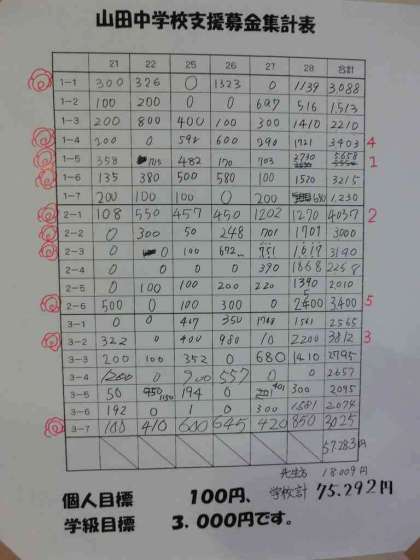 山田中学校支援募金集計表
21 22 25 26 27 28 合計
1-1 300 326 0 1323 0 1139 3088
1-2 100 200 0 0 697 516 1,513
1-3 200 800 400 100 300 1410 2210
1-4 200 0 592 600 290 1721 3403 4
1-5 358 482 170 703 2730 5658 1
1-6 135 380 500 580 100 1520 3215
1-7 200 100 100 0 200 630 1,230
2-1 108 550 457 450 1202 1270 4037 2
2-2 0 300 50 248 1701 1701 3000
2-3 0 0 100 672 751 1,617 3190
2-4 0 0 0 390 1868 2258
2-5 0 100 100 200 220 1390 2010
2-6 500 0 100 300 0 2400 3,400 5
3-1 0 0 407 350 2565
3-2 322 0 400 980 10 2200 3812 3
3-3 200 100 352 0 680 1410 2795
3-4 1200 0 900 557 0 0 2657
3-5 50 1150 194 0 401 300 2095
3-6 192 0 1 0 300 1581 2074
3-7 100 410 600 645 420 850 3025
57283円
先生方 18,009円
個人目標 100円、 学校計 75,292円
学級目標 3,000円です。